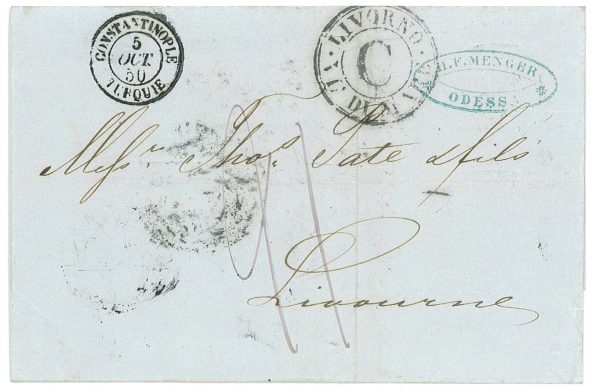 CONSTANTINOPLE
5
OCT.
50
TURQUIE
LIVORNO
C
VIA DI MARE
H.F. MENGER
ODESSA
Messrs Thos Pate & fils
Livourne